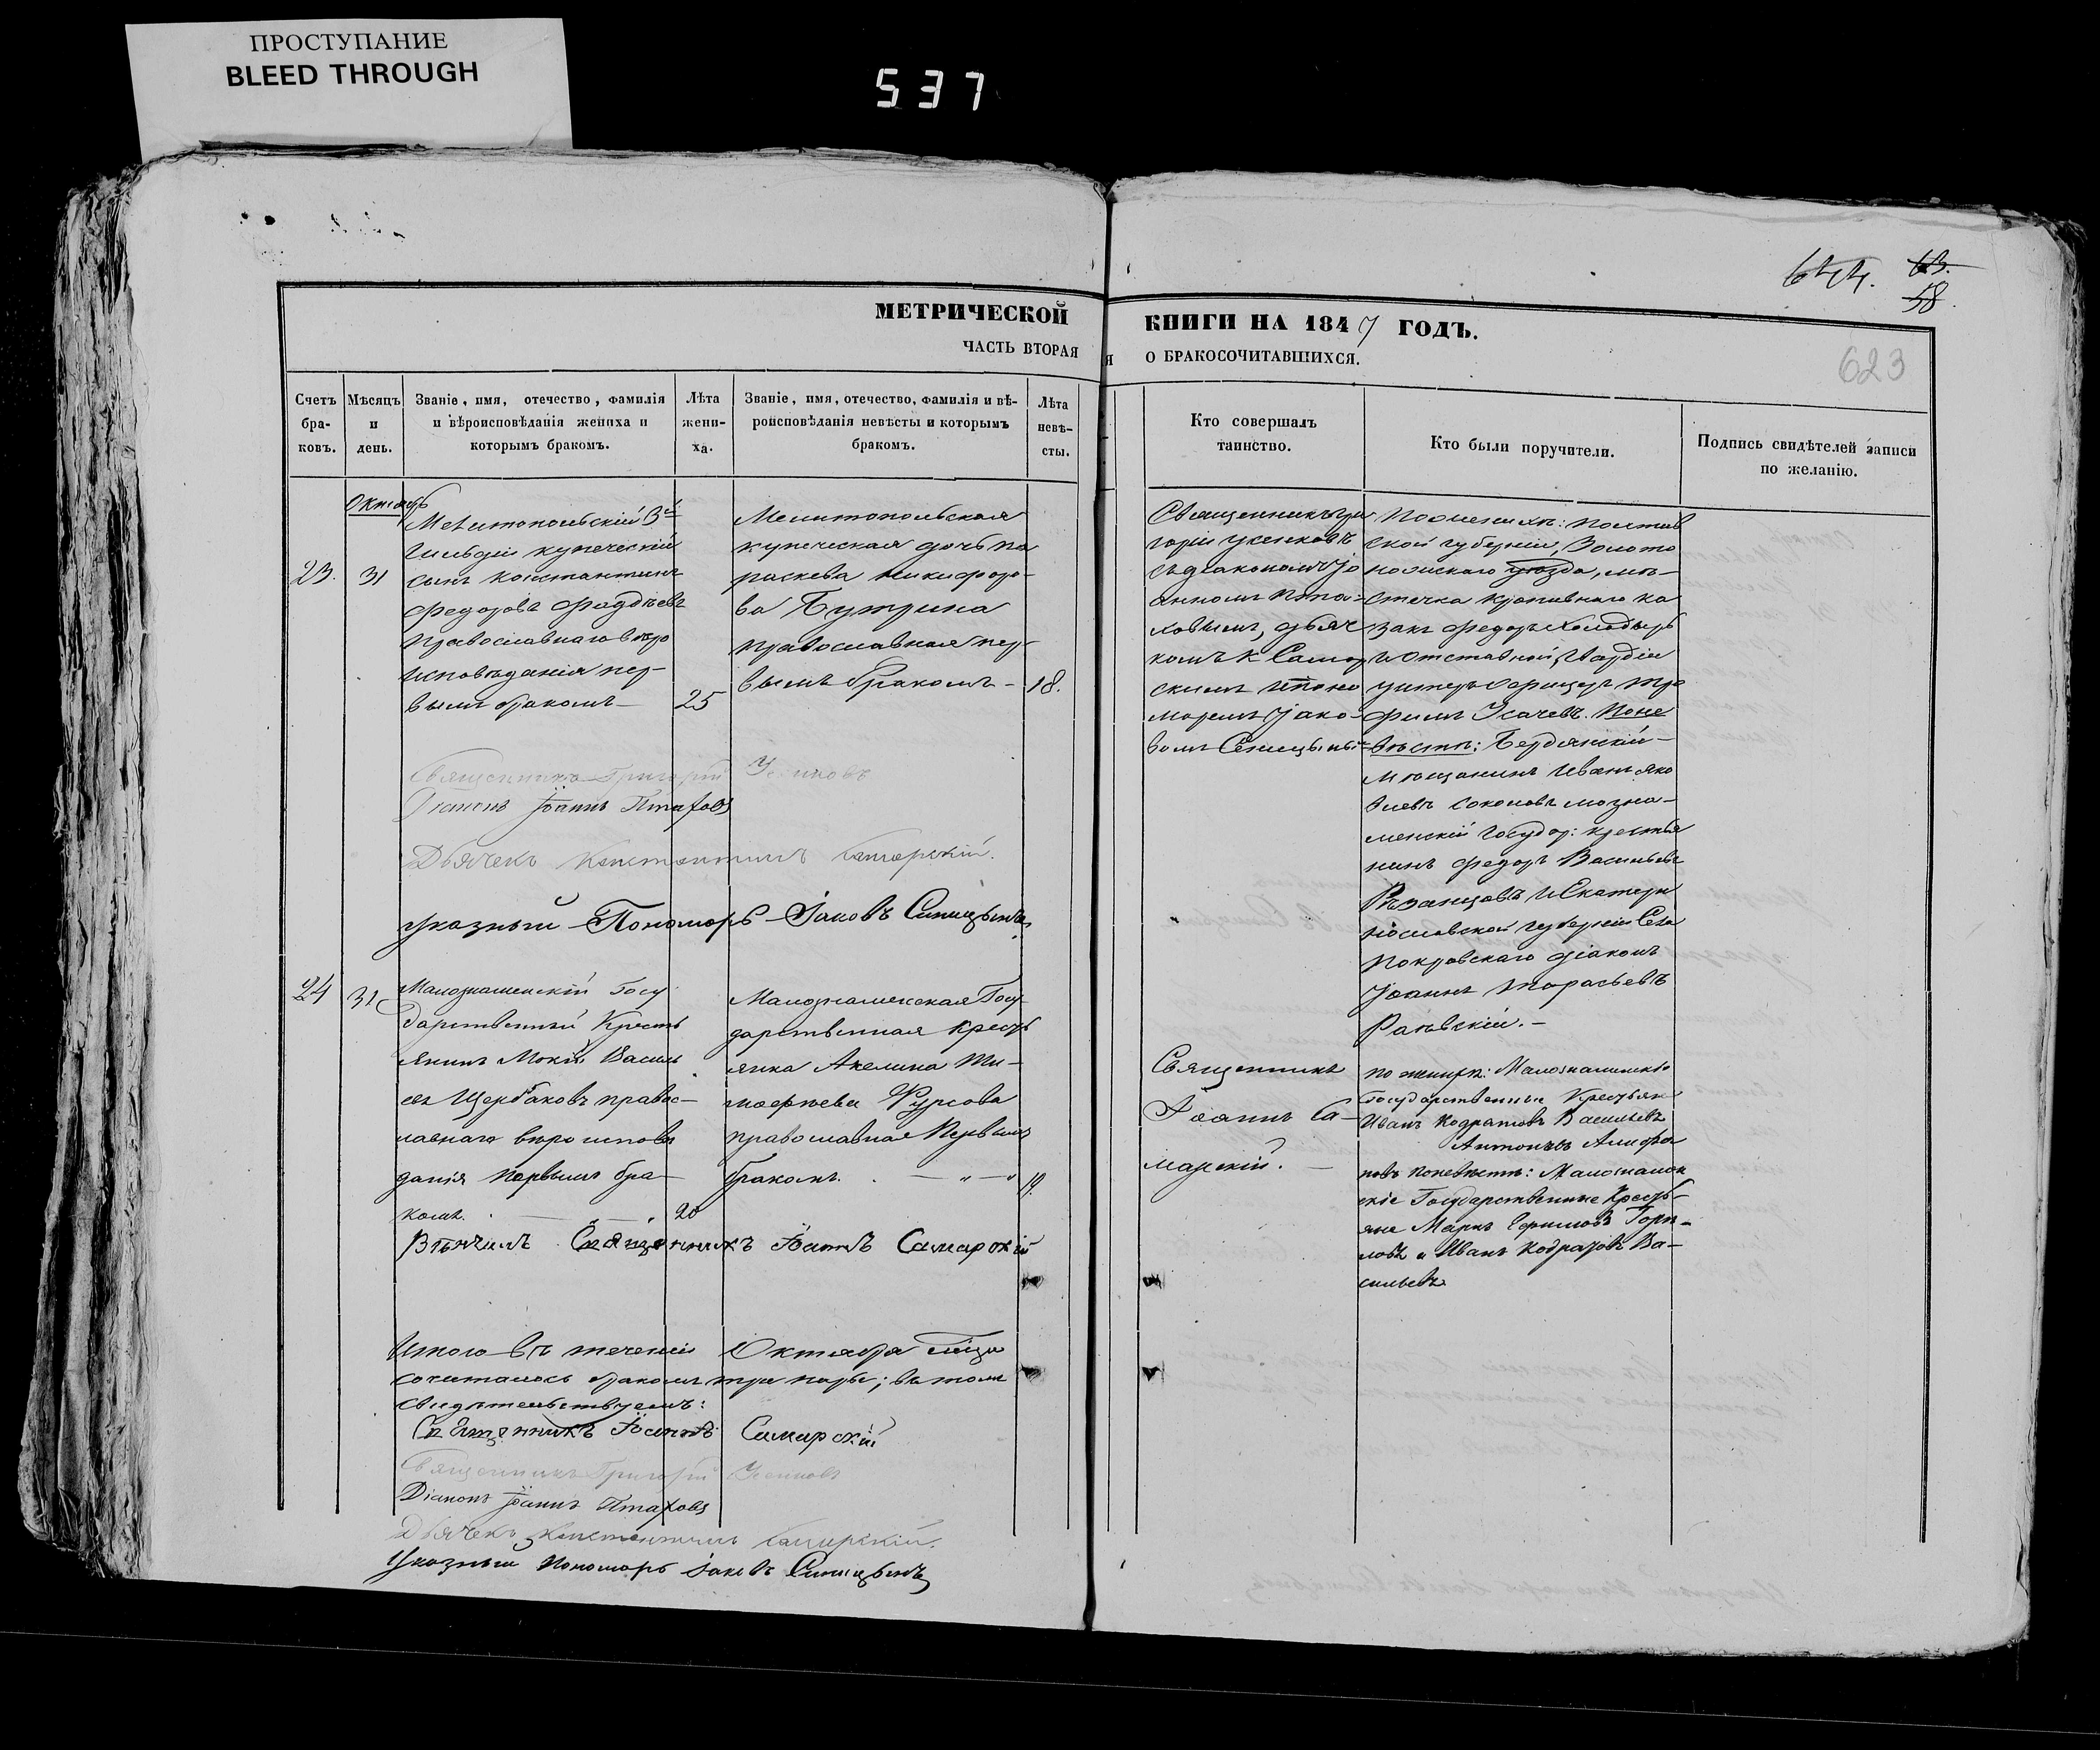 ПРОСТУПАНИЕ
BLEED THROUGH
537
644. 63.
58.
623
МЕТРИЧЕСКОЙ КНИГИ НА 1847 ГОДЪ.
ЧАСТЬ ВТОРАЯ О БРАКОСОЧИТАВШИХСЯ.
Счетъ бра-ковъ.
Мѣсяцъ и день.
Званіе, имя, отечество, фамилія и вѣроисповѣданія жениха и которымъ бракомъ.
Лѣта жени-ха.
Званіе, имя, отечество, фамилія и вѣ-роисповѣданія невѣсты и которымъ бракомъ.
Лѣта невѣ-сты.
Кто совершалъ таинство.
Кто были поручители.
Подпись свидѣтелей записи по желанію.
Октябрь
23.
31
Мелитопольскій 3й
Гильдіи купеческій
сынъ Константинъ
Федоровъ Фадѣевъ
православнаго вѣро
исповѣданія пер-
вымъ бракомъ
25
Мелитопольская
купеческая дочь Па
раскева Никифоро-
ва Бутрина
православная пер-
вымъ бракомъ
18.
Священникъ Гри
горій Усенковъ
съ діакономъ Іо
анномъ Пта-
ховымъ, дьяч
комъ К Самар
скимъ и поно
маремъ Іако-
вомъ Синицынымъ
По женихѣ: Полтав
ской губерніи, Золото
ношскаго уѣзда, мѣ-
стечка Кропивнаго ка
закъ Федоръ Холодырь
и Отставной Гвардіи
унтеръ Офицеръ Тро
фимъ Усачевъ. По не
вѣстѣ: Бердянскій
мѣщанинъ Иванъ Яко
влевъ Соконовъ Мозна-
менскій Государ: крестья
нинъ Федоръ Васильевъ
Рѣзанцовъ и Екатери
нославской губерніи Села
Покровскаго діаконъ
Іоаннъ Тарасьевъ
Раевскій.
Священникъ Григорій Усенковъ
Діаконъ Іоаннъ Птаховъ
Дьячекъ Константинъ Самарскій.
Указный Пономарь Іаковъ Синицынъ
24
31
Малознаменскій Госу
дарственный Кресть
янинъ Мокій Василь
евъ Щербаковъ правос-
лавнаго вѣроисповѣ
данія первымъ бра
комъ.
20
Малознаменская Госу
дарственная кресть
янка Акелина Ти-
мофѣева Фурсова
православная Первымъ
бракомъ.
19.
Священникъ
Іоаннъ Са-
марскій.
по женихѣ: Малознаменскіе
Государственные Крестьяне
Иванъ Кодратовъ Васильевъ
Антонъ Алифа
новъ по невѣстѣ: Малознамен
скіе Государственные Кресть-
яне Маркъ Ефимовъ Горя-
новъ и Иванъ Кодратовъ Ва-
сильевъ
Вѣнчалъ Священникъ Іоаннъ Самарскій
Итого въ теченіи Октября мѣсяца
сочеталось бракомъ три пары; въ томъ
свидѣтельствуемъ:
Священникъ Іоаннъ Самарскій
Священникъ Григорій Усенковъ
Діаконъ Іоаннъ Птаховъ
Дьячекъ Константинъ Самарскій.
Указный Пономарь Іаковъ Синицынъ